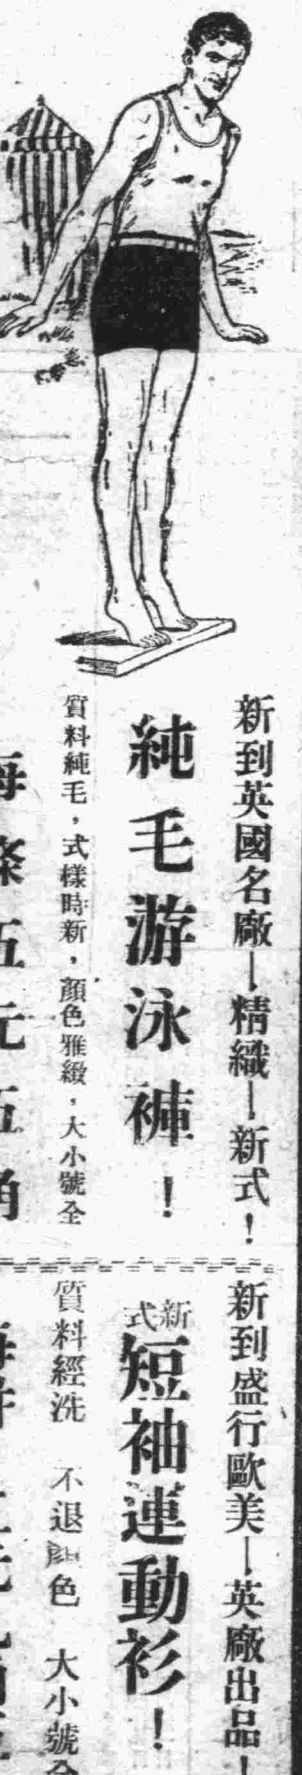 新到英國名廠—精織—新式！
純毛游泳褲！
質料純毛，式樣時新，顏色雅緻，大小號全
每條五元五角
新到盛行歐美—英廠出品—
新式
短袖運動衫！
質料經洗　不退顏色　大小號全